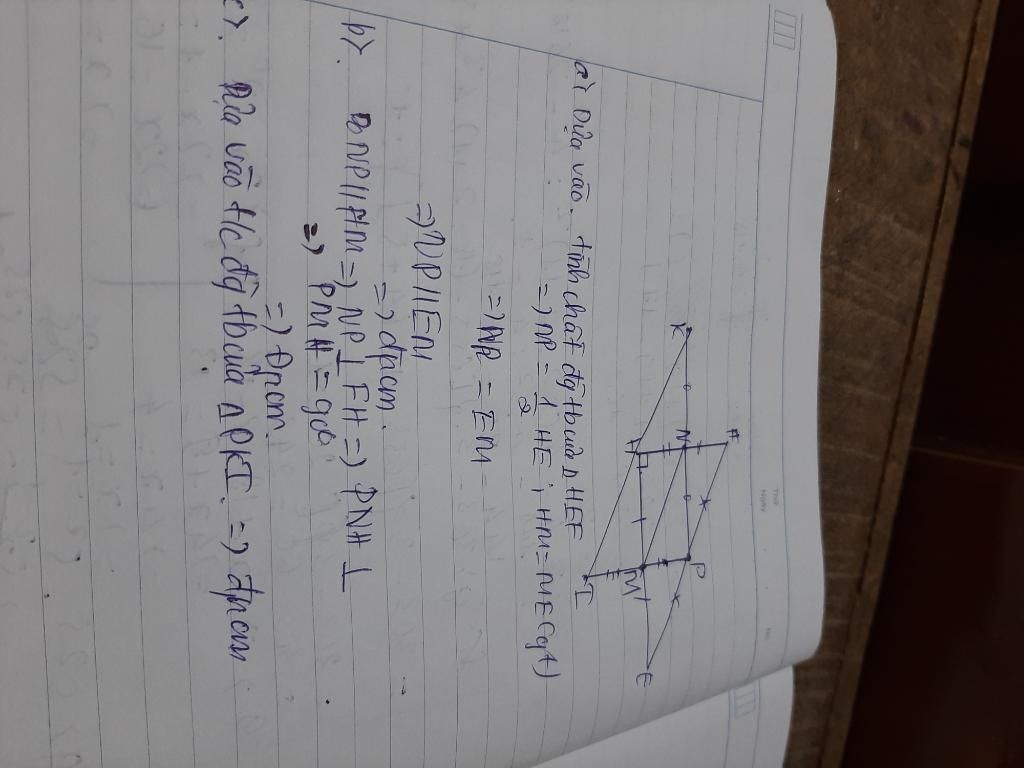 K
F
N
P
H
M
E
I
a) Dựa vào tính chất đg tb của Δ HEF
=) NP = 1/2 HE ; HM = ME (gt)
=) NP = EM
=) NP // EM
=) đpcm.
b). Do NP // HM =) NP ⊥ FH =) PNH ⊥
=) PMH = 90°
=) Đpcm.
c). Dựa vào t/c đg tb của Δ PKI. =) đpcm